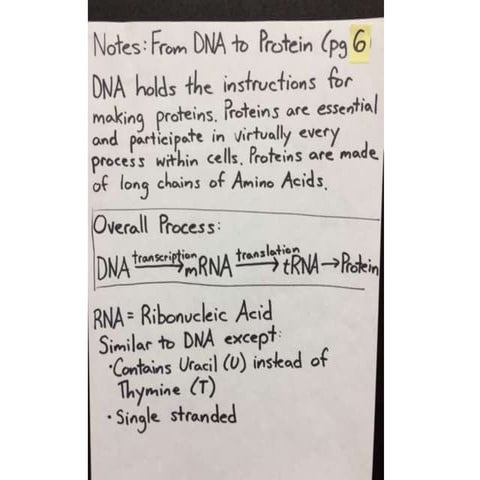 Notes: From DNA to Protein (pg 6
DNA holds the instructions for
making proteins. Proteins are essential
and participate in virtually every
process within cells. Proteins are made
of long chains of Amino Acids.
Overall Process:
DNA transcription→ mRNA translation→ tRNA→Protein
RNA = Ribonucleic Acid
Similar to DNA except:
·Contains Uracil (U) instead of
Thymine (T)
·Single stranded